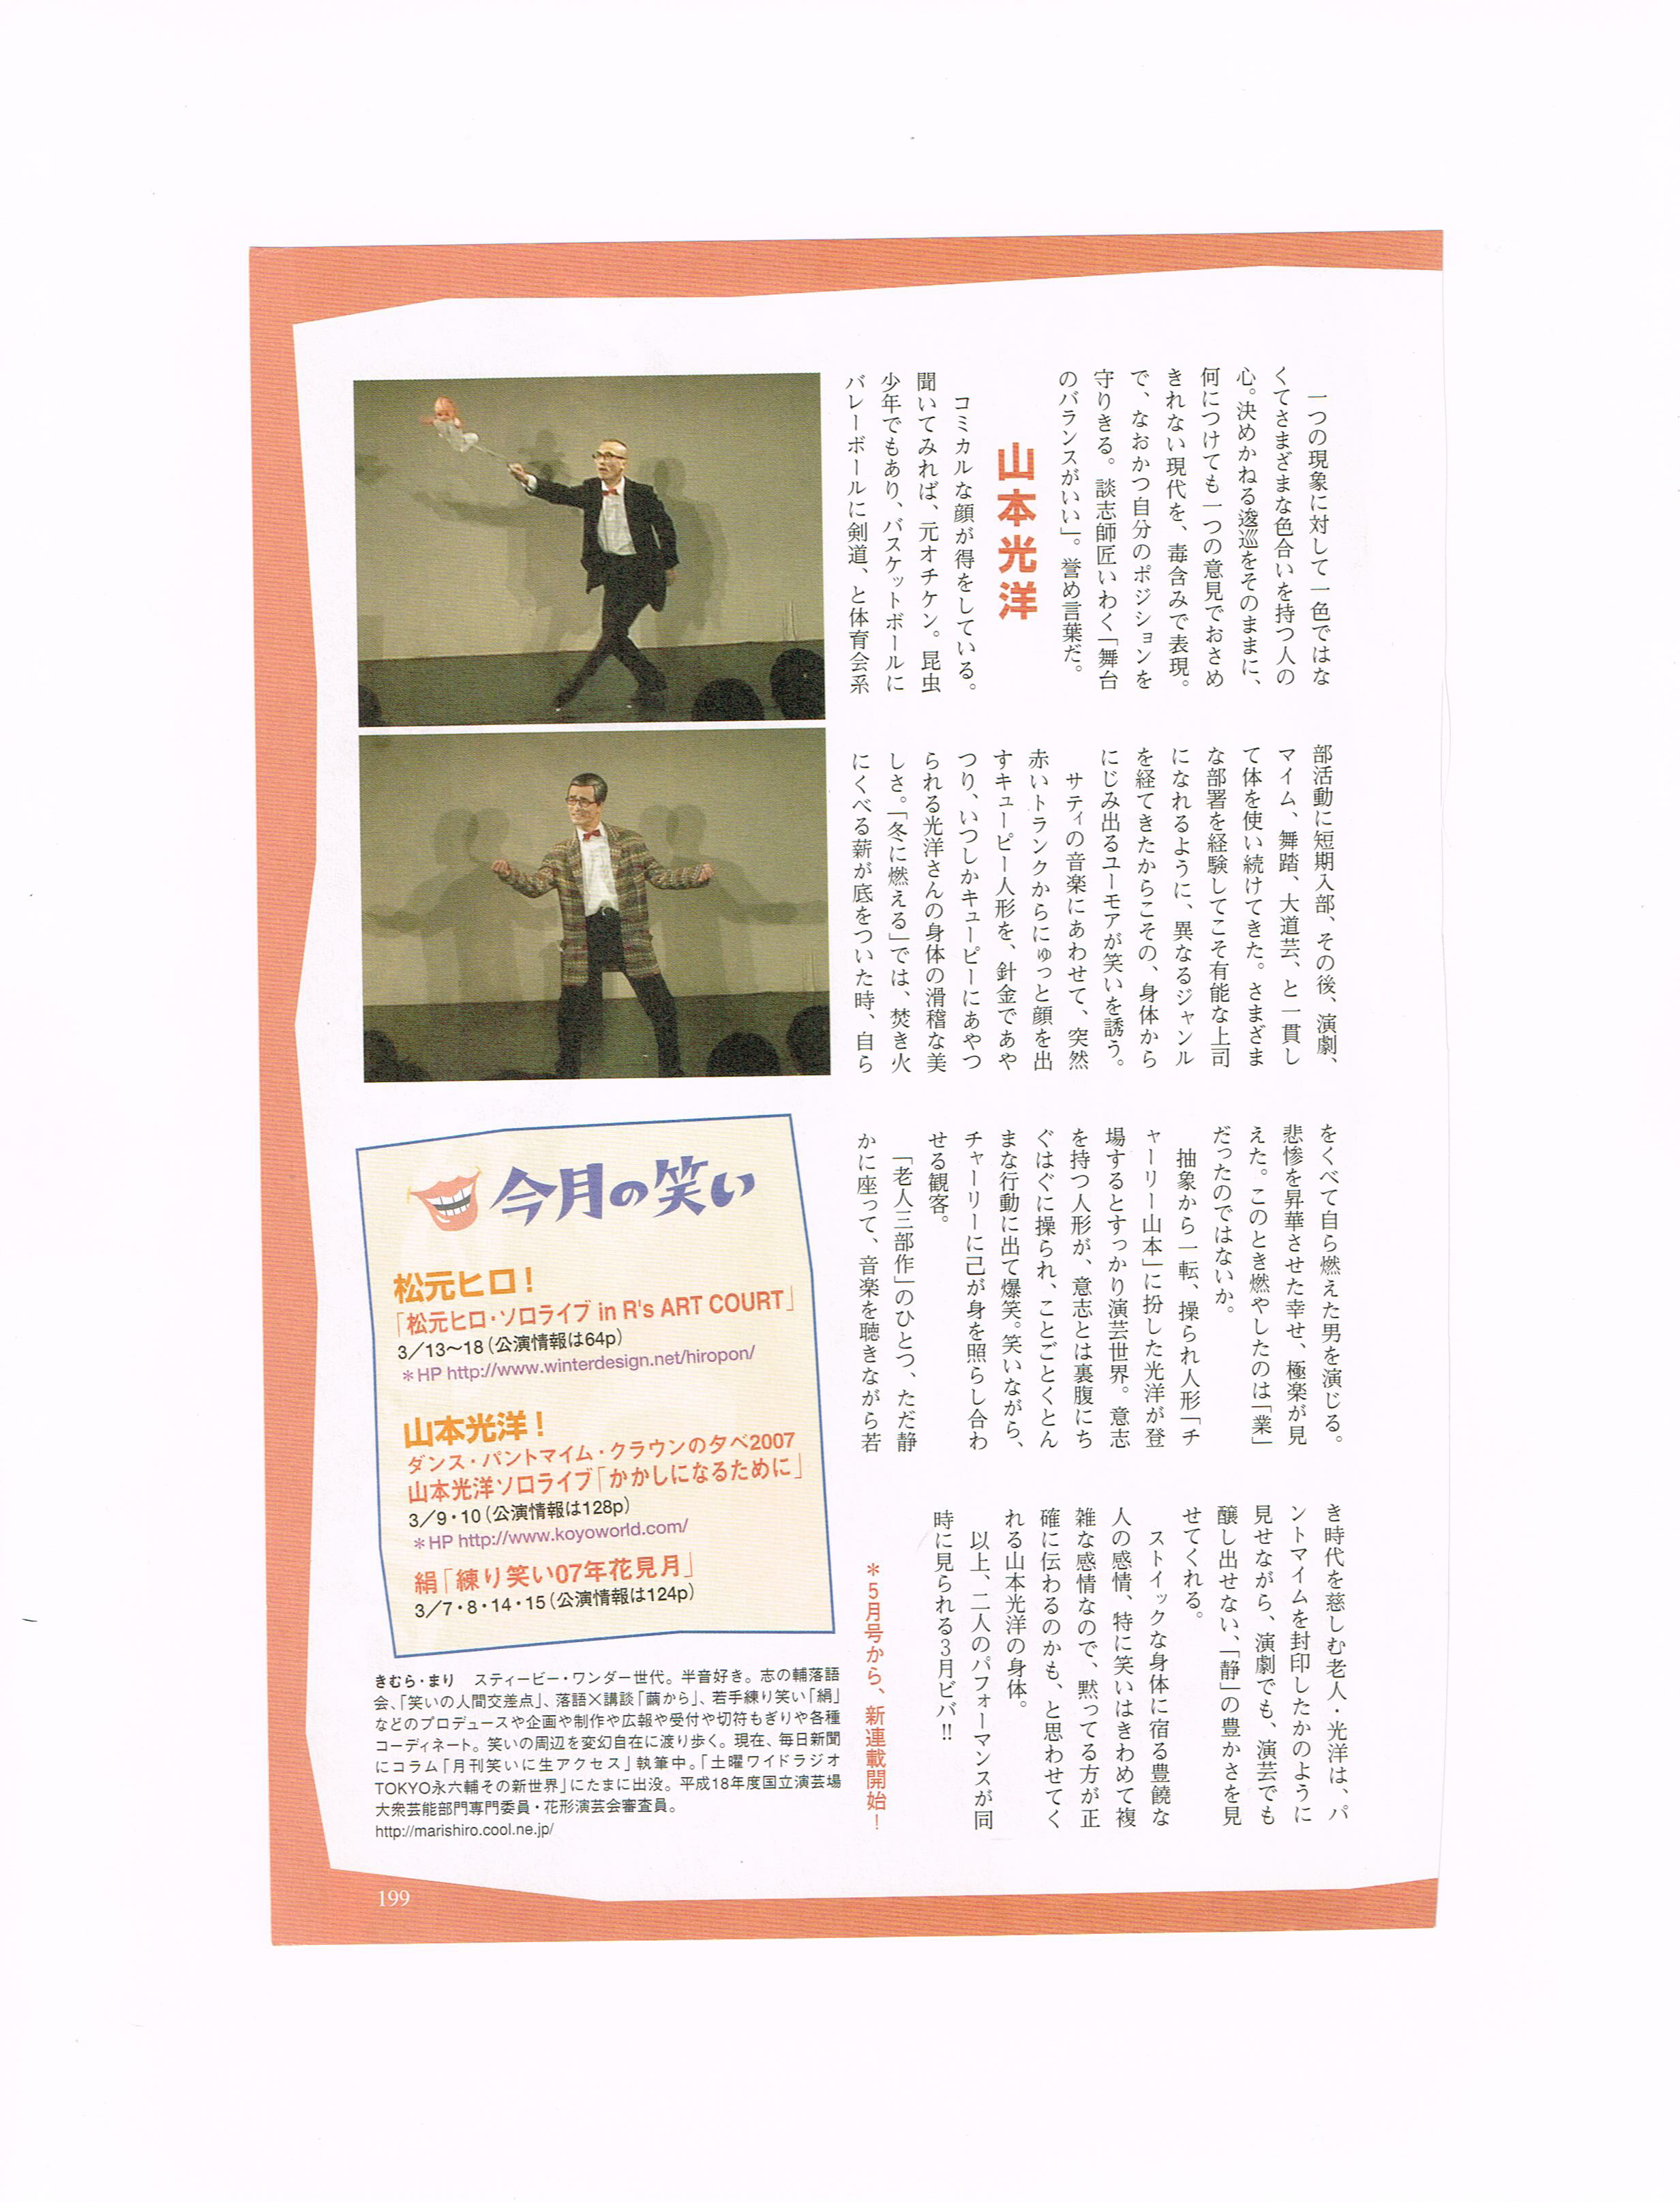 一つの現象に対して一色ではな
くてさまざまな色合いを持つ人の
心。決めかねる逡巡をそのままに、
何につけても一つの意見でおさめ
きれない現代を、毒含みで表現。
で、なおかつ自分のポジションを
守りきる。談志師匠いわく「舞台
のバランスがいい」。誉め言葉だ。
山本光洋
コミカルな顔が得をしている。
聞いてみれば、元オチケン。昆虫
少年でもあり、バスケットボールに
バレーボールに剣道、と体育会系
部活動に短期入部、その後、演劇、
マイム、舞踏、大道芸、と一貫し
て体を使い続けてきた。さまざま
な部署を経験してこそ有能な上司
になれるように、異なるジャンル
を経てきたからこその、身体から
にじみ出るユーモアが笑いを誘う。
サティの音楽にあわせて、突然
赤いトランクからにゅっと顔を出
すキューピー人形を、針金であや
つり、いつしかキューピーにあやつ
られる光洋さんの身体の滑稽な美
しさ。「冬に燃える」では、焚き火
にくべる薪が底をついた時、自ら
をくべて自ら燃えた男を演じる。
悲惨を昇華させた幸せ、極楽が見
えた。このとき燃やしたのは「業」
だったのではないか。
抽象から一転、操られ人形「チ
ャーリー山本」に扮した光洋が登
場するとすっかり演芸世界。意志
を持つ人形が、意志とは裏腹にち
ぐはぐに操られ、ことごとくとん
まな行動に出て爆笑。笑いながら、
チャーリーに己が身を照らし合わ
せる観客。
「老人三部作」のひとつ、ただ静
かに座って、音楽を聴きながら若
き時代を慈しむ老人・光洋は、パ
ントマイムを封印したかのように
見せながら、演劇でも、演芸でも
醸し出せない、「静」の豊かさを見
せてくれる。
ストイックな身体に宿る豊饒な
人の感情、特に笑いはきわめて複
雑な感情なので、黙ってる方が正
確に伝わるのかも、と思わせてく
れる山本光洋の身体。
以上、二人のパフォーマンスが同
時に見られる3月ビバ!!
＊5月号から、新連載開始！
今月の笑い
松元ヒロ！
「松元ヒロ・ソロライブ in R's ART COURT」
3／13〜18（公演情報は64p）
＊HP http://www.winterdesign.net/hiropon/
山本光洋！
ダンス・パントマイム・クラウンの夕べ2007
山本光洋ソロライブ「かかしになるために」
3／9・10（公演情報は128p）
＊HP http://www.koyoworld.com/
絹「練り笑い07年花見月」
3／7・8・14・15（公演情報は124p）
きむら・まり　スティービー・ワンダー世代。半音好き。志の輔落語
会、「笑いの人間交差点」、落語×講談「繭から」、若手練り笑い「絹」
などのプロデュースや企画や制作や広報や受付や切符もぎりや各種
コーディネート。笑いの周辺を変幻自在に渡り歩く。現在、毎日新聞
にコラム「月刊笑いに生アクセス」執筆中。「土曜ワイドラジオ
TOKYO永六輔その新世界」にたまに出没。平成18年度国立演芸場
大衆芸能部門専門委員・花形演芸会審査員。
http://marishiro.cool.ne.jp/
199